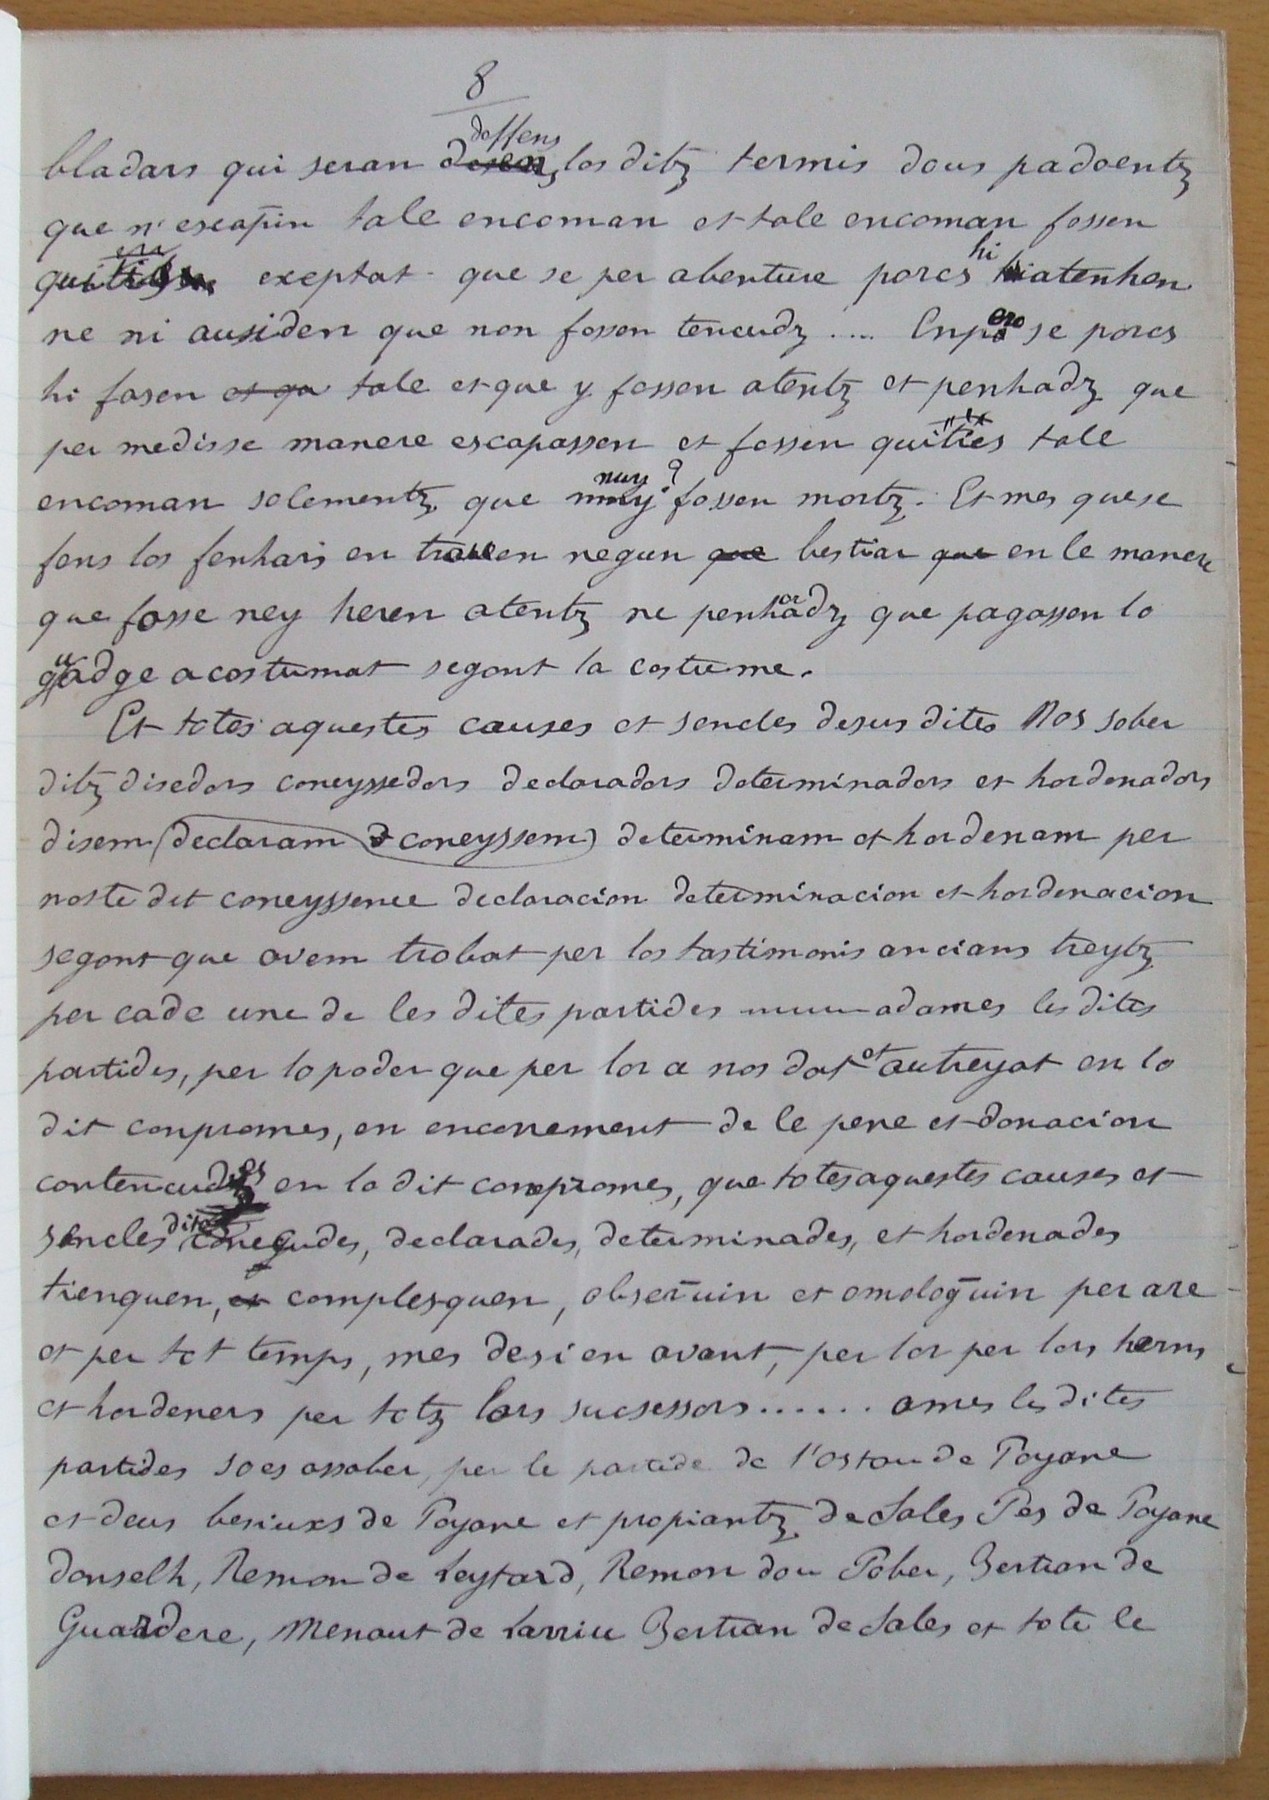 8
bladars qui seran deffens los ditz termis dous padoentz
que n'escapin tale encoman et tale encoman fossen
exeptat que se per abenture porcs hi atenhen
ne ni ausiden que non fossen tencudz .... Enpero se porcs
hi fasen et qu tale et que y fossen atentz et penhadz que
per medisse manere escapassen et fossen quities tale
encoman solementz que nuy ? fossen mortz. Et mes que se
fens los fenhars en traven negun que bestiar que en le manere
que fosse ney heren atentz ne penhoradz que pagassen lo
guadge acostumat segont la costume.
Et totes aquestes causes et sencles desus dites Nos sober
ditz disedors coneyssedors declaradors determinadors et hordenadors
disem (declaram & coneyssem) determinam et hordenam per
noste dit coneyssence declaracion determinacion et hordenacion
segont que avem trobat per los tastimonis ancians treytz
per cade une de les dites partides adames les dites
partides, per lo poder que per lor a nos dat et autreyat en lo
dit conpromes, en encorrement de le pene et donacion
contencudes en lo dit conpromes, que totes aquestes causes et
sencles dites conegudes, declarades, determinades, et hordenades
tienquen, et complesquen, obseruin et omologuin per are
et per tot temps, mes desi en avant, per lor per lors herns
et hordeners per totz lors sucsessors...... ames les dites
partides so es assaber, per le partide de l'ostau de Poyane
et deus besiuxs de Poyane et propiantz de Sales Pes de Poyane
donselh, Remon de Leytard, Remon dou Pober, Bertran de
Guardere, Menaut de Larriu Bertran de Sales et tote le